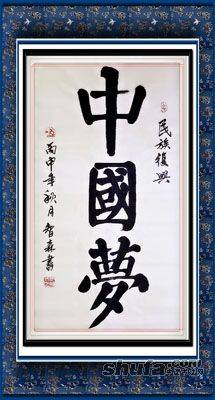 民族復興
中國夢
丙申年秋月智森書
shufa.com